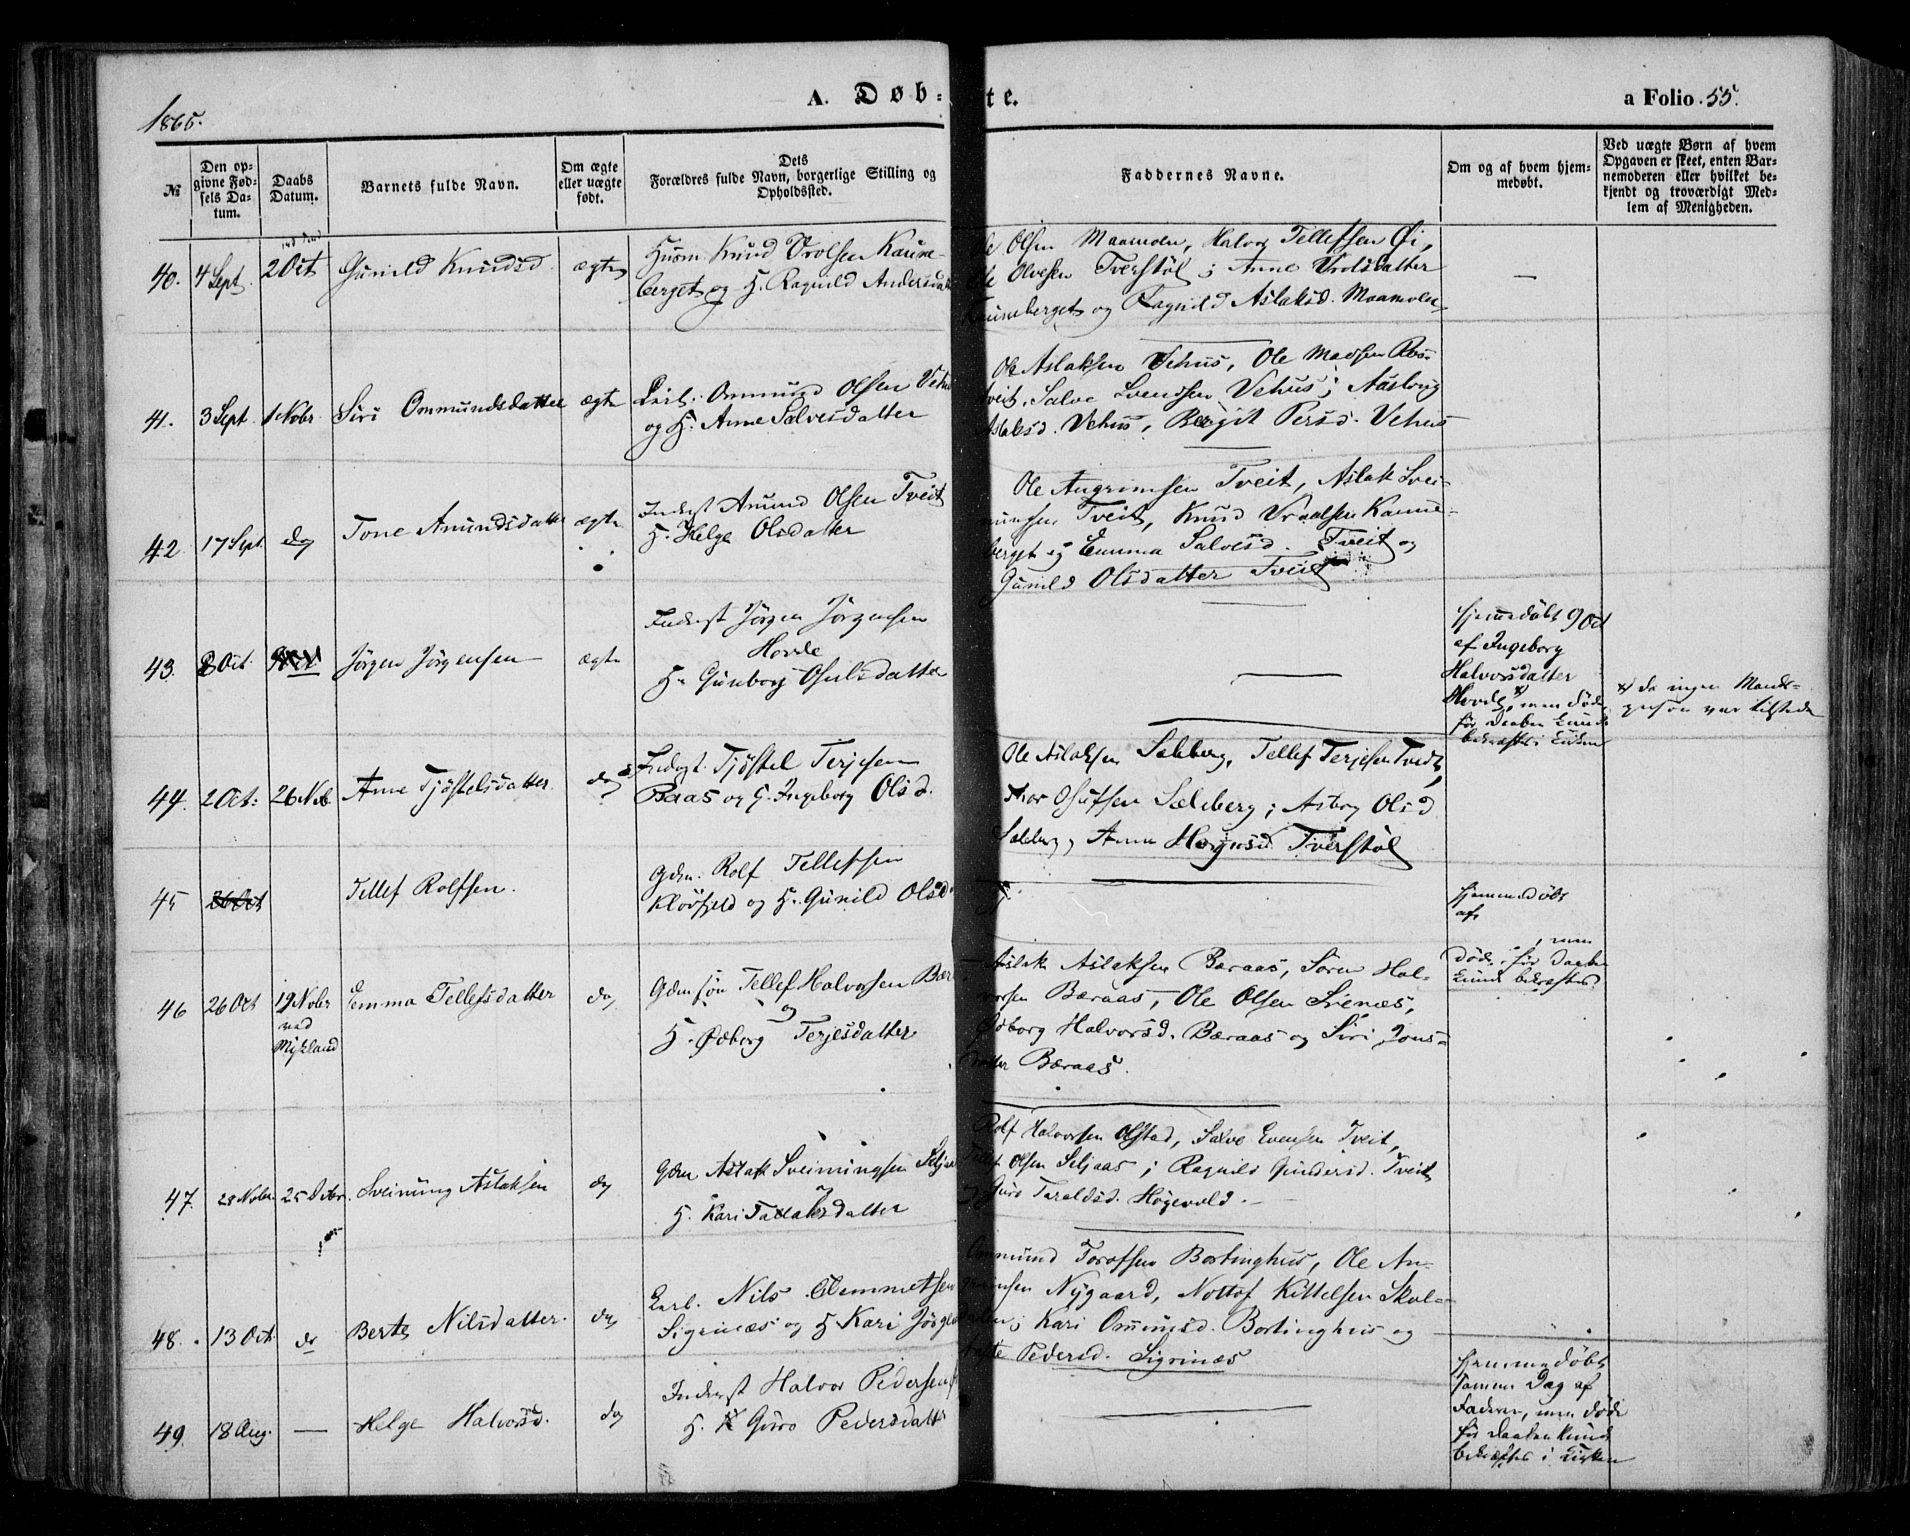 1865.
A. Døb-
te.
a Folio 55.
№
Den op-
givne Fød-
sels Da-
tum.
Daabs
Datum.
Barnets fulde Navn.
Om ægte
eller uægte
født.
Dets
Forældres fulde Navn, borgerlige Stilling og
Opholdssted.
Faddernes Navne.
Om og af hvem hjem-
medøbt.
Ved uægte Børn af hvem
Opgaven er skeet, enten Bar-
nemoderen eller hvilket be-
kjendt og troværdigt Med-
lem af Menigheden.
40. 4 Sept. 2 Oct Gunild Knudsd. ægte
Husm. Knud Vrolsen Kaune-
berget og H. Ragnild Andersdat
Ole Olsen Maamoen, Halvor Tellefsen Øi,
Ole Olvesen Tverstøl; Anne Vrolsdatter
Kauneberget og Ragnild Aslaksd. Maamoen
41. 3 Sept. 1 Nobr Siri Ommundsdatter ægte
Ommund Olsen Vehus
og H. Anne Salvesdatter
Ole Aslaksen Vehus, Ole Madsen Ros-
tveit, Salve Svendsen Vehus; Aasborg
Aslaksd. Vehus, Birgit Persd. Vehus
42 17 Sept. do Tone Anundsdatter ægte
Inderst Anund Olsen Tveit
H. Helge Olsdatter
Ole Angrimsen Tveit, Aslak Svei-
nungsen Tveit, Knud Vraalsen Kaune-
berget og Emma Salvesd. Tveit og
Gunild Olsdatter Tveit
43. 8 Oct. Jørgen Jørgensen ægte
Inderst Jørgen Jørgensen
Hovde
H. Gunborg Osulsdatter
hjemmedøbt 9 Oct
af Ingeborg
Halvorsdatter
Hovde x), men døde
før Daaben kunde
bekræftes i Kirken
x) da ingen Mands-
person var tilstede
44. 2 Oct: 26 Nob Anne Tjøstelsdatter do
Inderst. Tjøstel Terjesen
Baas og H. Ingeborg Olsd.
Ole Aslaksen Sæleberg, Tellef Terjesen Tveit,
Thor Osufsen Sæleberg; Asborg Olsd
Sæleberg, Anne Hognesd Tverstøl
45 26 Oct Tellef Rolfsen.
Gdm. Rolf Tellefsen
Kløvfjeld og H. Gunild Olsd.
hjemmedøbt
af
, men
døde før Daaben
kunde bekræftes.
46 26 Oct 19 Nobr
ved
Mykland Emma Tellefsdatter do
Gdm søn Tellef Halvorsen Bær
og
H. Ødborg Terjesdatter
Aslak Aslaksen Bæraas, Søren Hal-
vorsen Bæraas, Ole Olsen Svenæs,
Ødborg Halvorsd. Bæraas og Siri Jons-
datter Bæraas.
47. 28 Nobr. 25 Debr. Sveinung Aslaksen do
Gdm Aslak Sveinungsen Seljaas
H. Kari Tallaksdatter
Rolf Halvorsen Olstad, Salve Evensen Tveit,
Tellef Olsen Seljaas; Ragnild Gundersd. Tveit
og Guro Taraldsd. Høgevold.
48. 13 Oct. do Berte Nilsdatter. do
Nils Clemmetsen
Sigrinæs og H. Kari Jørg
Ommund Torofsen Bortinghus, Ole An-
grimsen Nygaard, Nottof Kittelsen Skol-
Kari Ommundsd. Bortinghus og
Pedersd. Sigrinæs
49. 18 Aug. — Helge Halvorsd. do
Inderst Halvor Pedersen
H. Guro Pedersdatter
hjemmedøbt
samme Dag af
Faderen, men døde
før Daaben kunde
bekræftes i Kirken